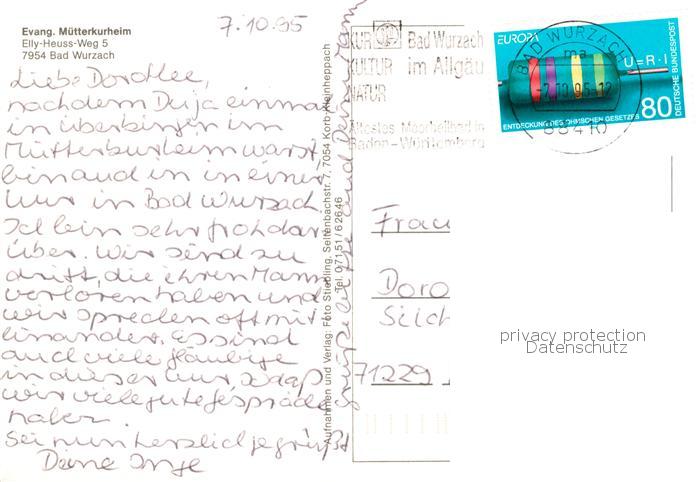 7.10.95
Evang. Mütterkurheim
Elly-Heuss-Weg 5
7954 Bad Wurzach
Liebe Dorothee,
nachdem Du ja einmal
in Überlingen im
Mütterkurheim warst,
bin auch in einer
Kur in Bad Wurzach.
Ich bin sehr froh dar
über. Wir sind zu
dritt, die ihren Mann
verloren haben und
wir sprechen oft mit
einander. Es sind
auch viele gläubige
in dieser Kur, so daß
wir viele gute Gespräche
haben.
Sei nun herzlich gegrüßt
Deine Inge
Aufnahmen und Verlag: Foto Stiebling, Seitenbachstr. 7, 7054 Korb-Kleinheppach
Tel. 07151/62646
Grüße und Deinen Mann
KUR
KULTUR
NATUR
Bad Wurzach
im Allgäu
Ältestes Moorheilbad in
Baden-Württemberg
BAD WURZACH
ma
-7.10.95-12
88410
EUROPA
U=R·I
80
DEUTSCHE BUNDESPOST
ENTDECKUNG DES OHMSCHEN GESETZES
Frau
Doro
Silch
71229
privacy protection
Datenschutz